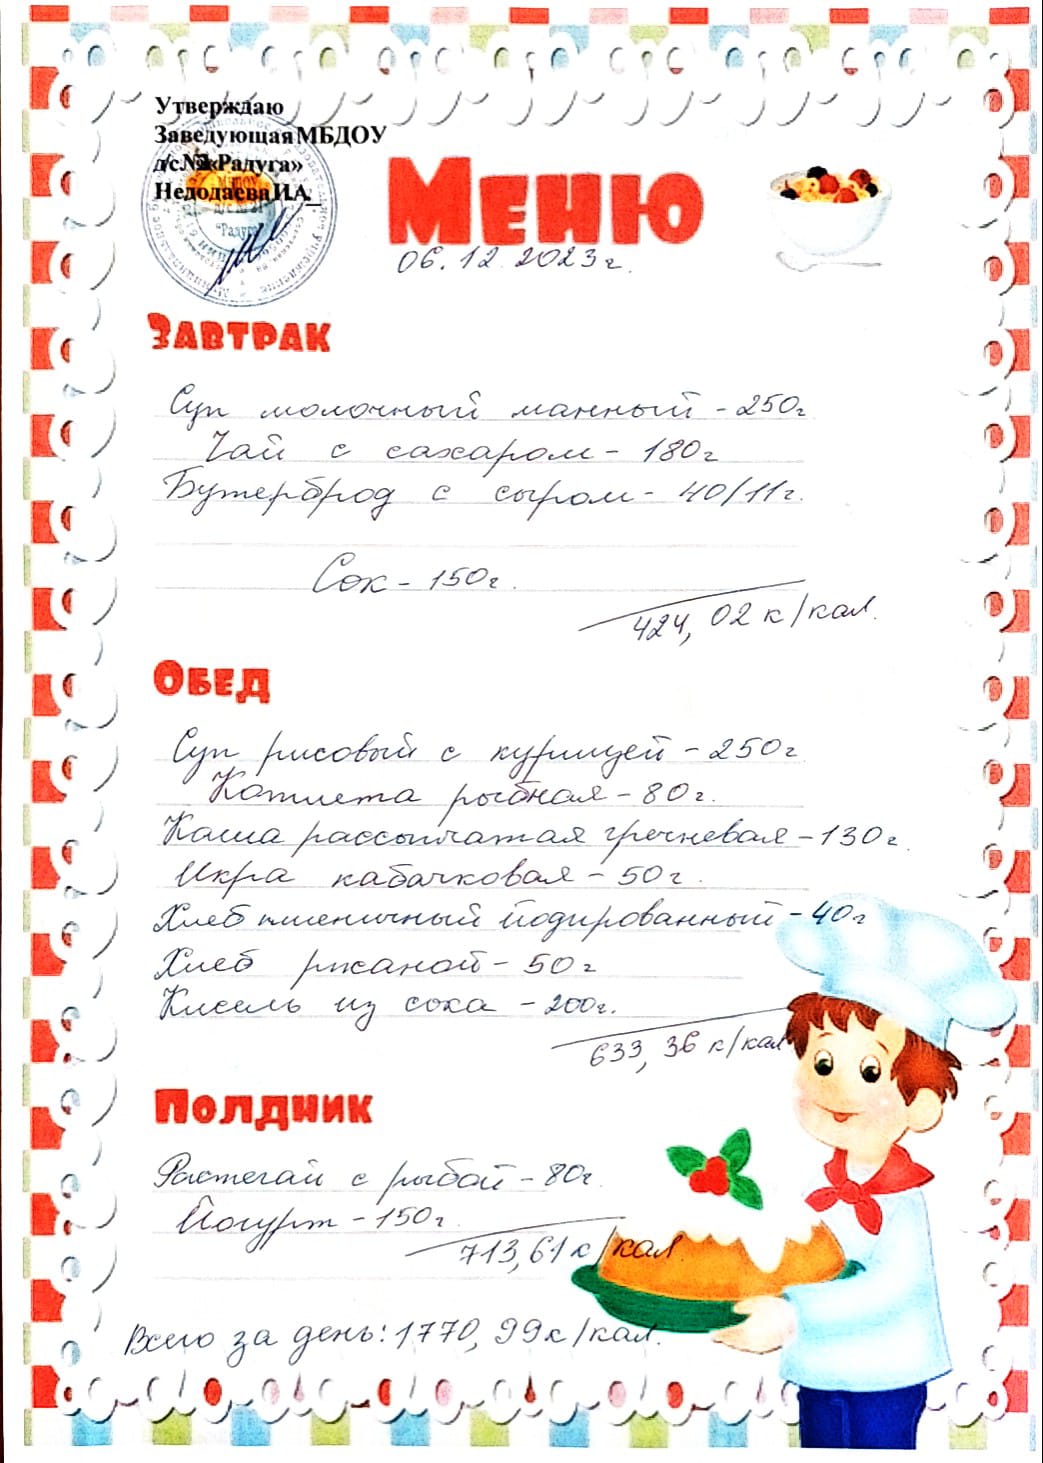 Утверждаю
Заведующая МБДОУ
д/с «Радуга»
Недодаева И.А.
"Радуга"
Меню
06.12.2023г.
Завтрак
Суп молочный манный - 250г
Чай с сахаром - 180г
Бутерброд с сыром - 40/11г.
Сок - 150г.
424,02 к/кал.
Обед
Суп рисовый с курицей - 250г
Котлета рыбная - 80г.
Каша рассыпчатая гречневая - 130г.
Икра кабачковая - 50г.
Хлеб пшеничный йодированный - 40г
Хлеб ржаной - 50г
Кисель из сока - 200г.
633,36 к/кал
Полдник
Расстегай с рыбой - 80г.
Йогурт - 150г.
713,61 к/кал
Всего за день: 1770,99к/кал.